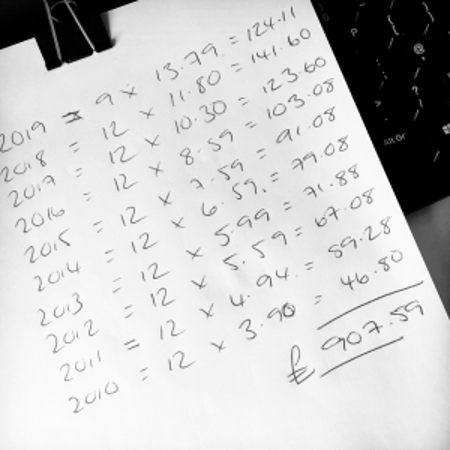 2019 = 9 × 13.79. = 124.11
2018 = 12 × 11.80 = 141.60
2017 = 12 × 10.30 = 123.60
2016 = 12 × 8.59 = 103.08
2015 = 12 × 7.59 = 91.08
2014 = 12 × 6.59. = 79.08
2013 = 12 × 5.99 = 71.88
2012 = 12 × 5.59 = 67.08
2011 = 12 × 4.94. = 59.28
2010 = 12 × 3.90 = 46.80
£ 907.59
@
?
Alt Gr